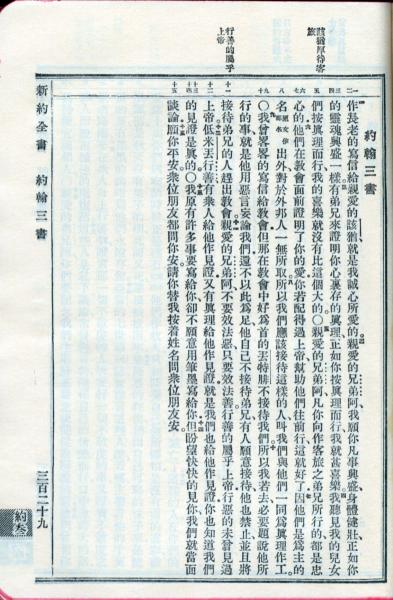 該猶厚待客
旅
行善的屬乎
上帝
約翰三書
一二
作長老的寫信給親愛的該猶就是我誠心所愛的親愛的兄弟阿我願你凡事興盛身體健壯正如你
三四
的靈魂興盛一樣有弟兄來證明你心裏存的眞理正如你按眞理而行我就甚喜樂我聽見我的兒女
五
們按眞理而行我的喜樂就沒有比這個大的○親愛的兄弟阿凡你向作客旅之弟兄所行的都是忠
六七
心的他們在教會面前證明了你的愛你若配得過上帝幫助他們往前行這就好了因他們是爲主的
八
名出外對於外邦人一無所取所以我們應該接待這樣的人叫我們與他們一同爲眞理作工。
九十
○我曾畧畧的寫信給教會但那在教會中好爲首的丟特腓不接待我們所以我若去必要題說他所
行的事就是他用惡言妄論我們還不以此爲足他自己不接待弟兄有人願意接待他也禁止並且將
十一
接待弟兄的人趕出教會親愛的兄弟阿不要效法惡只要效法善行善的屬乎上帝行惡的未曾見過
十二
上帝低米丟行善有衆人給他作見證又有眞理給他作見證就是我們也給他作見證你也知道我們
十三十四
的見證是眞的○我原有許多事要寫給你卻不願意用筆墨寫給你但盼望快快的見你我們就當面
十五
談論願你平安衆位朋友都問你安請你替我按着姓名問衆位朋友安。
新約全書 約翰三書
三百二十九
約叁